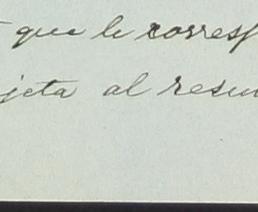 que le corresp
jeta al resu